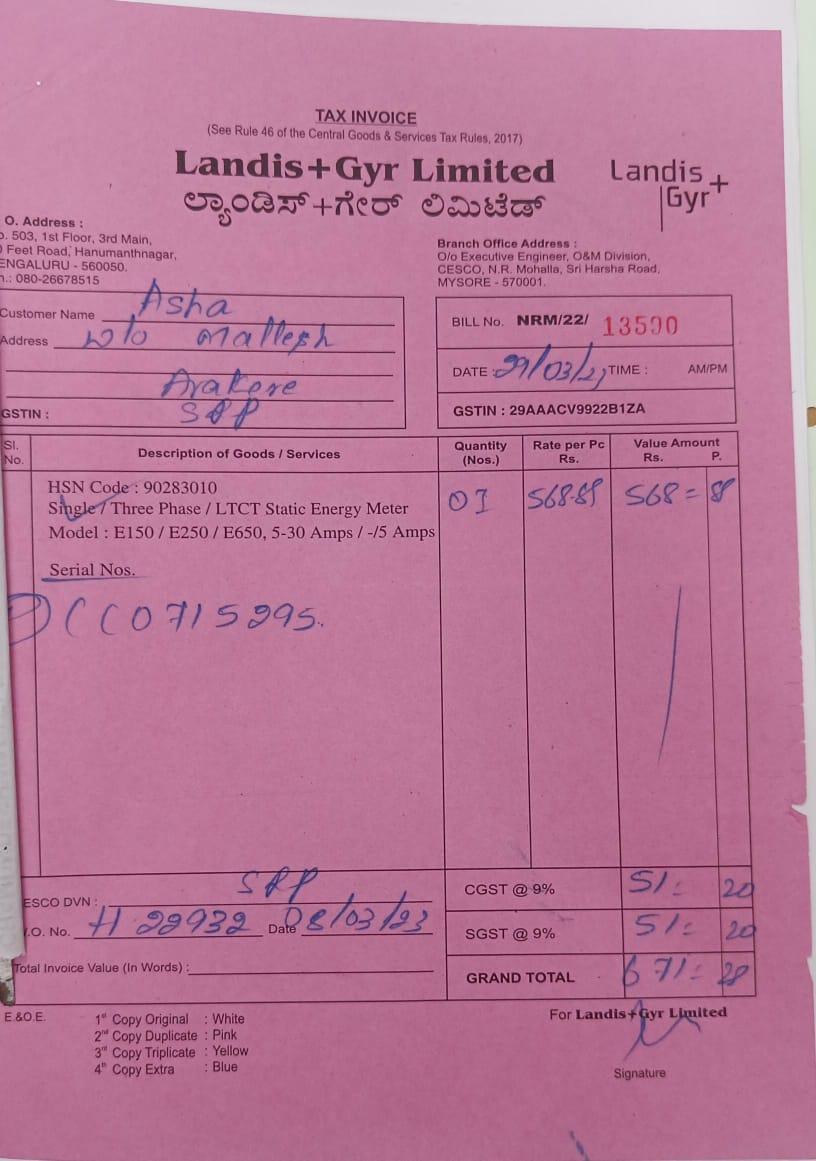 TAX INVOICE
(See Rule 46 of the Central Goods & Services Tax Rules, 2017)
Landis+Gyr Limited
Landis
Gyr+
ಲ್ಯಾಂಡಿಸ್+ಗೇರ್ ಲಿಮಿಟೆಡ್
O. Address :
o. 503, 1st Floor, 3rd Main,
Feet Road, Hanumanthnagar,
ENGALURU - 560050.
n.: 080-26678515
Branch Office Address :
O/o Executive Engineer, O&M Division,
CESCO, N.R. Mohalla, Sri Harsha Road,
MYSORE - 570001.
Customer Name Asha
Address W/o Mallesh
Arakere
SRP
GSTIN :
BILL No. NRM/22/ 13590
DATE : TIME : AM/PM
GSTIN : 29AAACV9922B1ZA
Sl. No. Description of Goods / Services Quantity (Nos.) Rate per Pc Rs. Value Amount Rs. P.
HSN Code : 90283010
Single / Three Phase / LTCT Static Energy Meter 01 568.89 568=
Model : E150 / E250 / E650, 5-30 Amps / -/5 Amps
Serial Nos.
0715295.
ESCO DVN : SRP
.O. No. H 22932 Date 08/03/23
Total Invoice Value (In Words) :
CGST @ 9% 51= 20
SGST @ 9% 51= 20
GRAND TOTAL 671= 28
E.&O.E.
1st Copy Original : White
2nd Copy Duplicate : Pink
3rd Copy Triplicate : Yellow
4th Copy Extra : Blue
For Landis+Gyr Limited
Signature